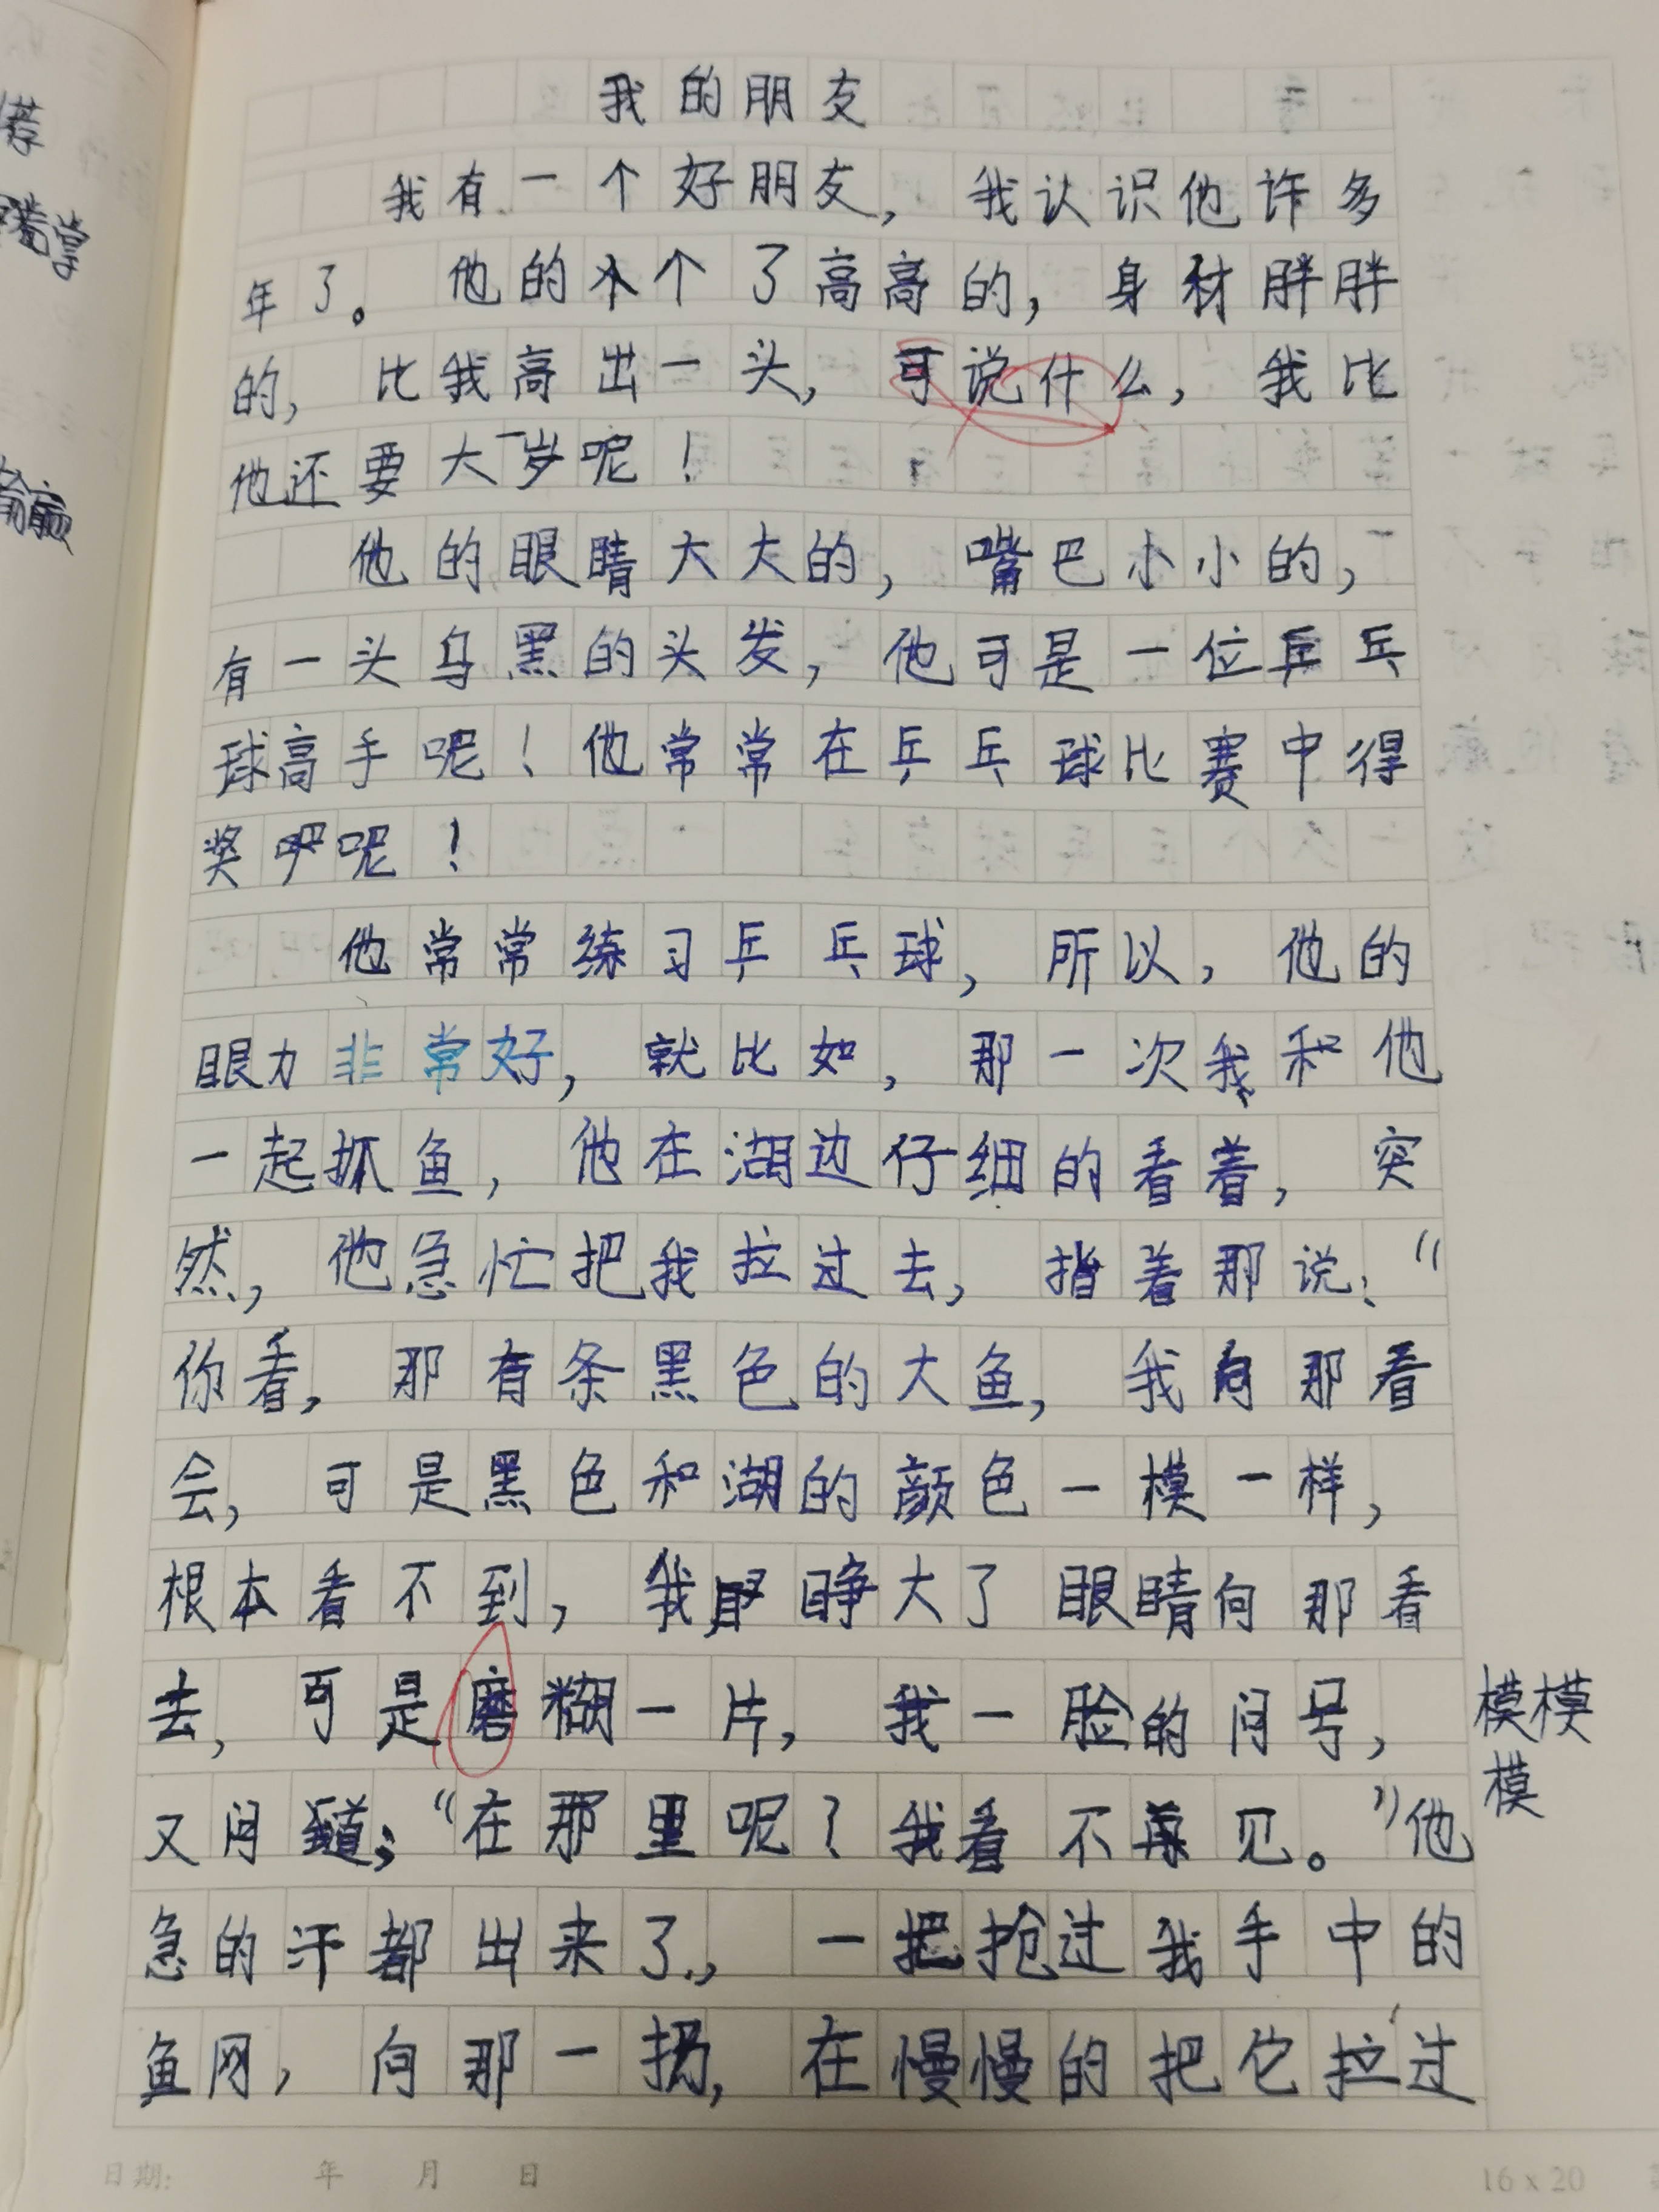 我的朋友
我有一个好朋友，我认识他许多
年了。他的个个了高高的，身材胖胖
的，比我高出一头，可说什么，我比
他还要大一岁呢！
他的眼睛大大的，嘴巴小小的，
有一头乌黑的头发，他可是一位乒乓
球高手呢！他常常在乒乓球比赛中得
奖吧呢！
他常常练习乒乓球，所以，他的
眼力非常好，就比如，那一次我和他
一起抓鱼，他在湖边仔细的看着，突
然，他急忙把我拉过去，指着那说：“
你看，那有条黑色的大鱼，我向那看
会，可是黑色和湖的颜色一模一样，
根本看不到，我睁大了眼睛向那看
去，可是磨糊一片，我一脸的问号，
模模
模
又问道：“在那里呢？我看不见。”他
急的汗都出来了，一把抢过我手中的
鱼网，向那一扔，在慢慢的把它拉过
日期： 年 月 日
16 x 20
荐
掌
赢